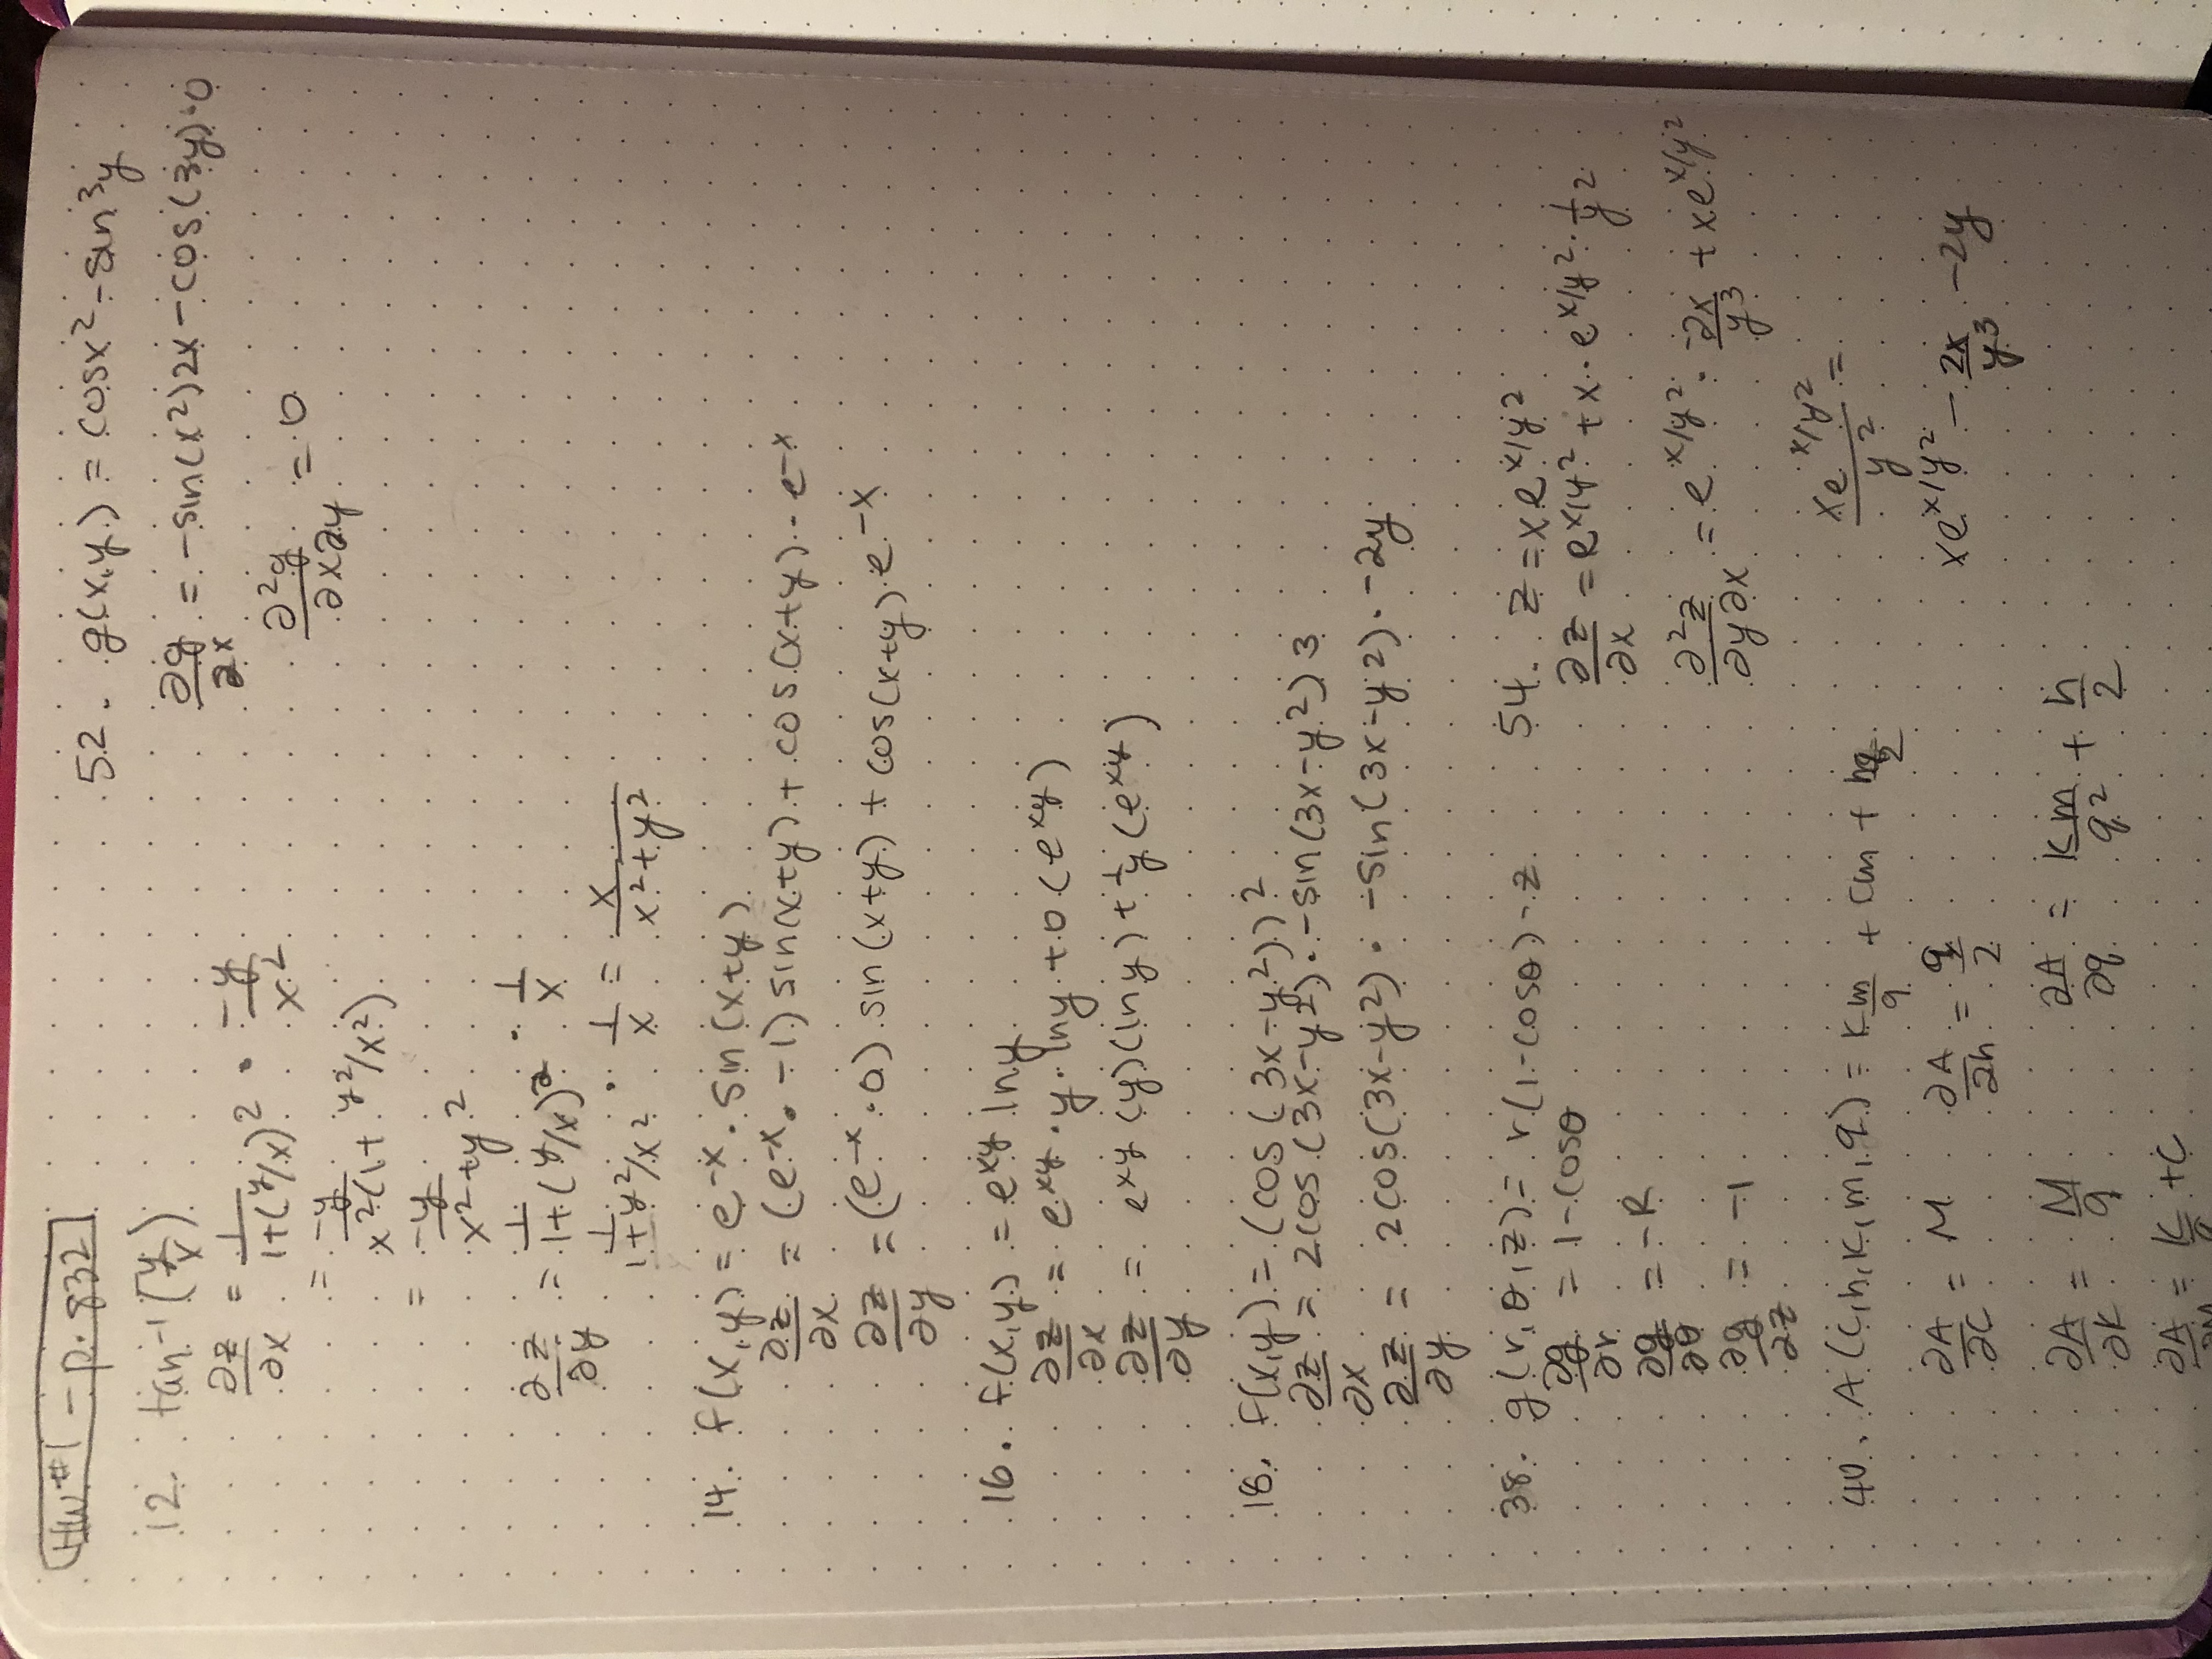 HW#1 - p. 832
12. tan⁻¹(y/x)
∂z/∂x = 1/(1+(y/x)²) · -y/x²
= -y/(x²(1+y²/x²))
= -y/(x²+y²)
∂z/∂y = 1/(1+(y/x)²) · 1/x
1/(1+y²/x²) · 1/x = x/(x²+y²)
14. f(x,y) = e^-x · sin(x+y)
∂z/∂x = (e^-x · -1) sin(x+y) + cos(x+y) · e^-x
∂z/∂y = (e^-x · 0) sin(x+y) + cos(x+y) · e^-x
16. f(x,y) = e^xy ln y
∂z/∂x = e^xy · y · ln y + 0(e^xy)
∂z/∂y = e^xy (y)(ln y) + 1/y (e^xy)
18. f(x,y) = (cos(3x-y²))²
∂z/∂x = 2cos(3x-y²) · -sin(3x-y²)3
∂z/∂y = 2cos(3x-y²) · -sin(3x-y²) · -2y
38. g(r,θ,z) = r(1-cosθ) - z
∂g/∂r = 1-cosθ
∂g/∂θ = -R
∂g/∂z = -1
40. A(c,h,k,m,q) = km/q + cm + hq/2
∂A/∂c = M ∂A/∂h = q/2
∂A/∂k = M/q ∂A/∂q = km/q² + h/2
∂A/∂M = k/q + c
52. g(x,y) = cosx² - sin3y
∂g/∂x = -sin(x²)2x - cos(3y)·0
∂²g/∂x∂y = 0
54. z = xe^x/y²
∂z/∂x = e^x/y² + x · e^x/y² · 1/y²
∂²z/∂y∂x = e^x/y² · -2x/y³ + xe^x/y²
xe^x/y² / y² =
xe^x/y² - 2x/y³ - 2y